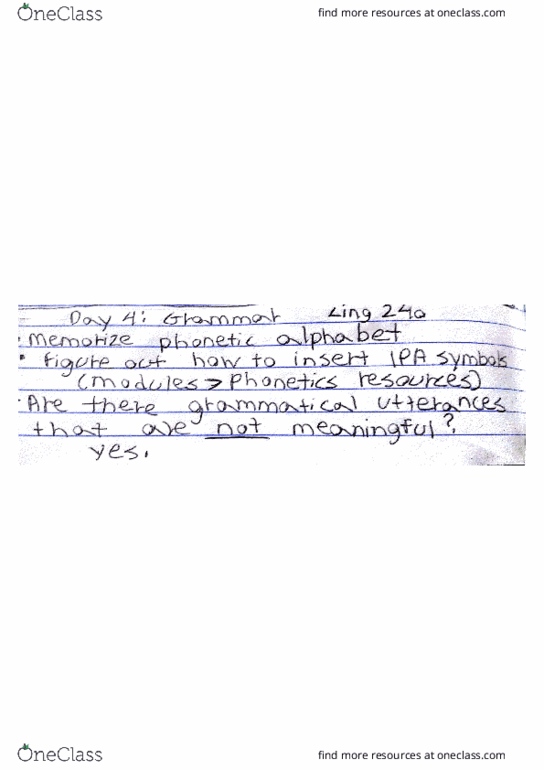 OneClass
find more resources at oneclass.com
Day 4: Grammar Ling 240
· memorize phonetic alphabet
· figure out how to insert IPA symbols
(modules > Phonetics resources)
· Are there grammatical utterances
that are not meaningful?
yes.
OneClass
find more resources at oneclass.com